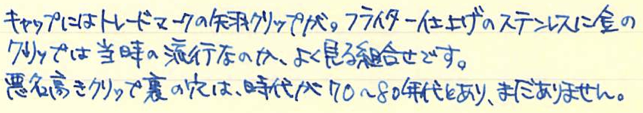 キャップにはトレードマークの矢羽クリップが。フライター仕上げのステンレスに金の
クリップは当時の流行なのか、よく見る組合せです。
悪名高きクリップ裏の穴は、時代が70〜80年代とあり、まだありません。